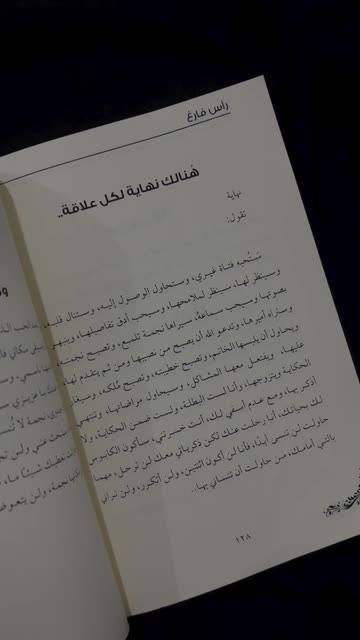 رأس فارغ
هُنالك نهاية لكل علاقة..
نهاية
تقول:
سَتُحبه فتاة غيري، وستحاول الوصول إليه، وستنال قلبه،
وسينظر لها، سينظر لملامحها، وسيحب أدق تفاصيلها، وينبهر
بصوتها وسيحب سماعه، سيراها نجمة تلمع، وتصبح نجمته،
وستراه أميرها، وتدعو الله أن يصبح من نصيبها ومن ثم يتقدم لها،
ويحاول أن يلبسها الخاتم، وتصبح خطيبته، وتصبح مُلكه، وسيغار
عليها، ويفتعل معها المشاكل، وسيحاول مراضاتها، وتنتهي
الحكاية ويتزوجها، وأنا لست البطلة، ولست ضمن الحكاية، ولا
أذكر بها، ومع عدم أسفي لك، أنت خسرتني، سأكون الكابوس
لك بحياتك، أنا رحلت عنك لكن ذكرياتي معك لن ترحل، مهما
حاولت لن تنسى أبدًا، فأنا لن أكون اثنتين، ولن أتكرر، ولن تراني
بالتي أمامك، من حاولت أن تنساني بها..
١٢٨